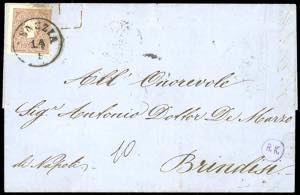 14
All' Onorevole
Sigr. Antonio Dottor De Marzo
di Napoli 10 Brindisi